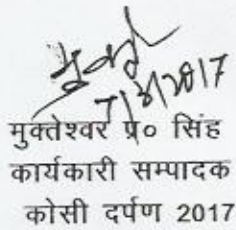 मुक्तेश्वर प्र० सिंह
कार्यकारी सम्पादक
कोसी दर्पण 2017